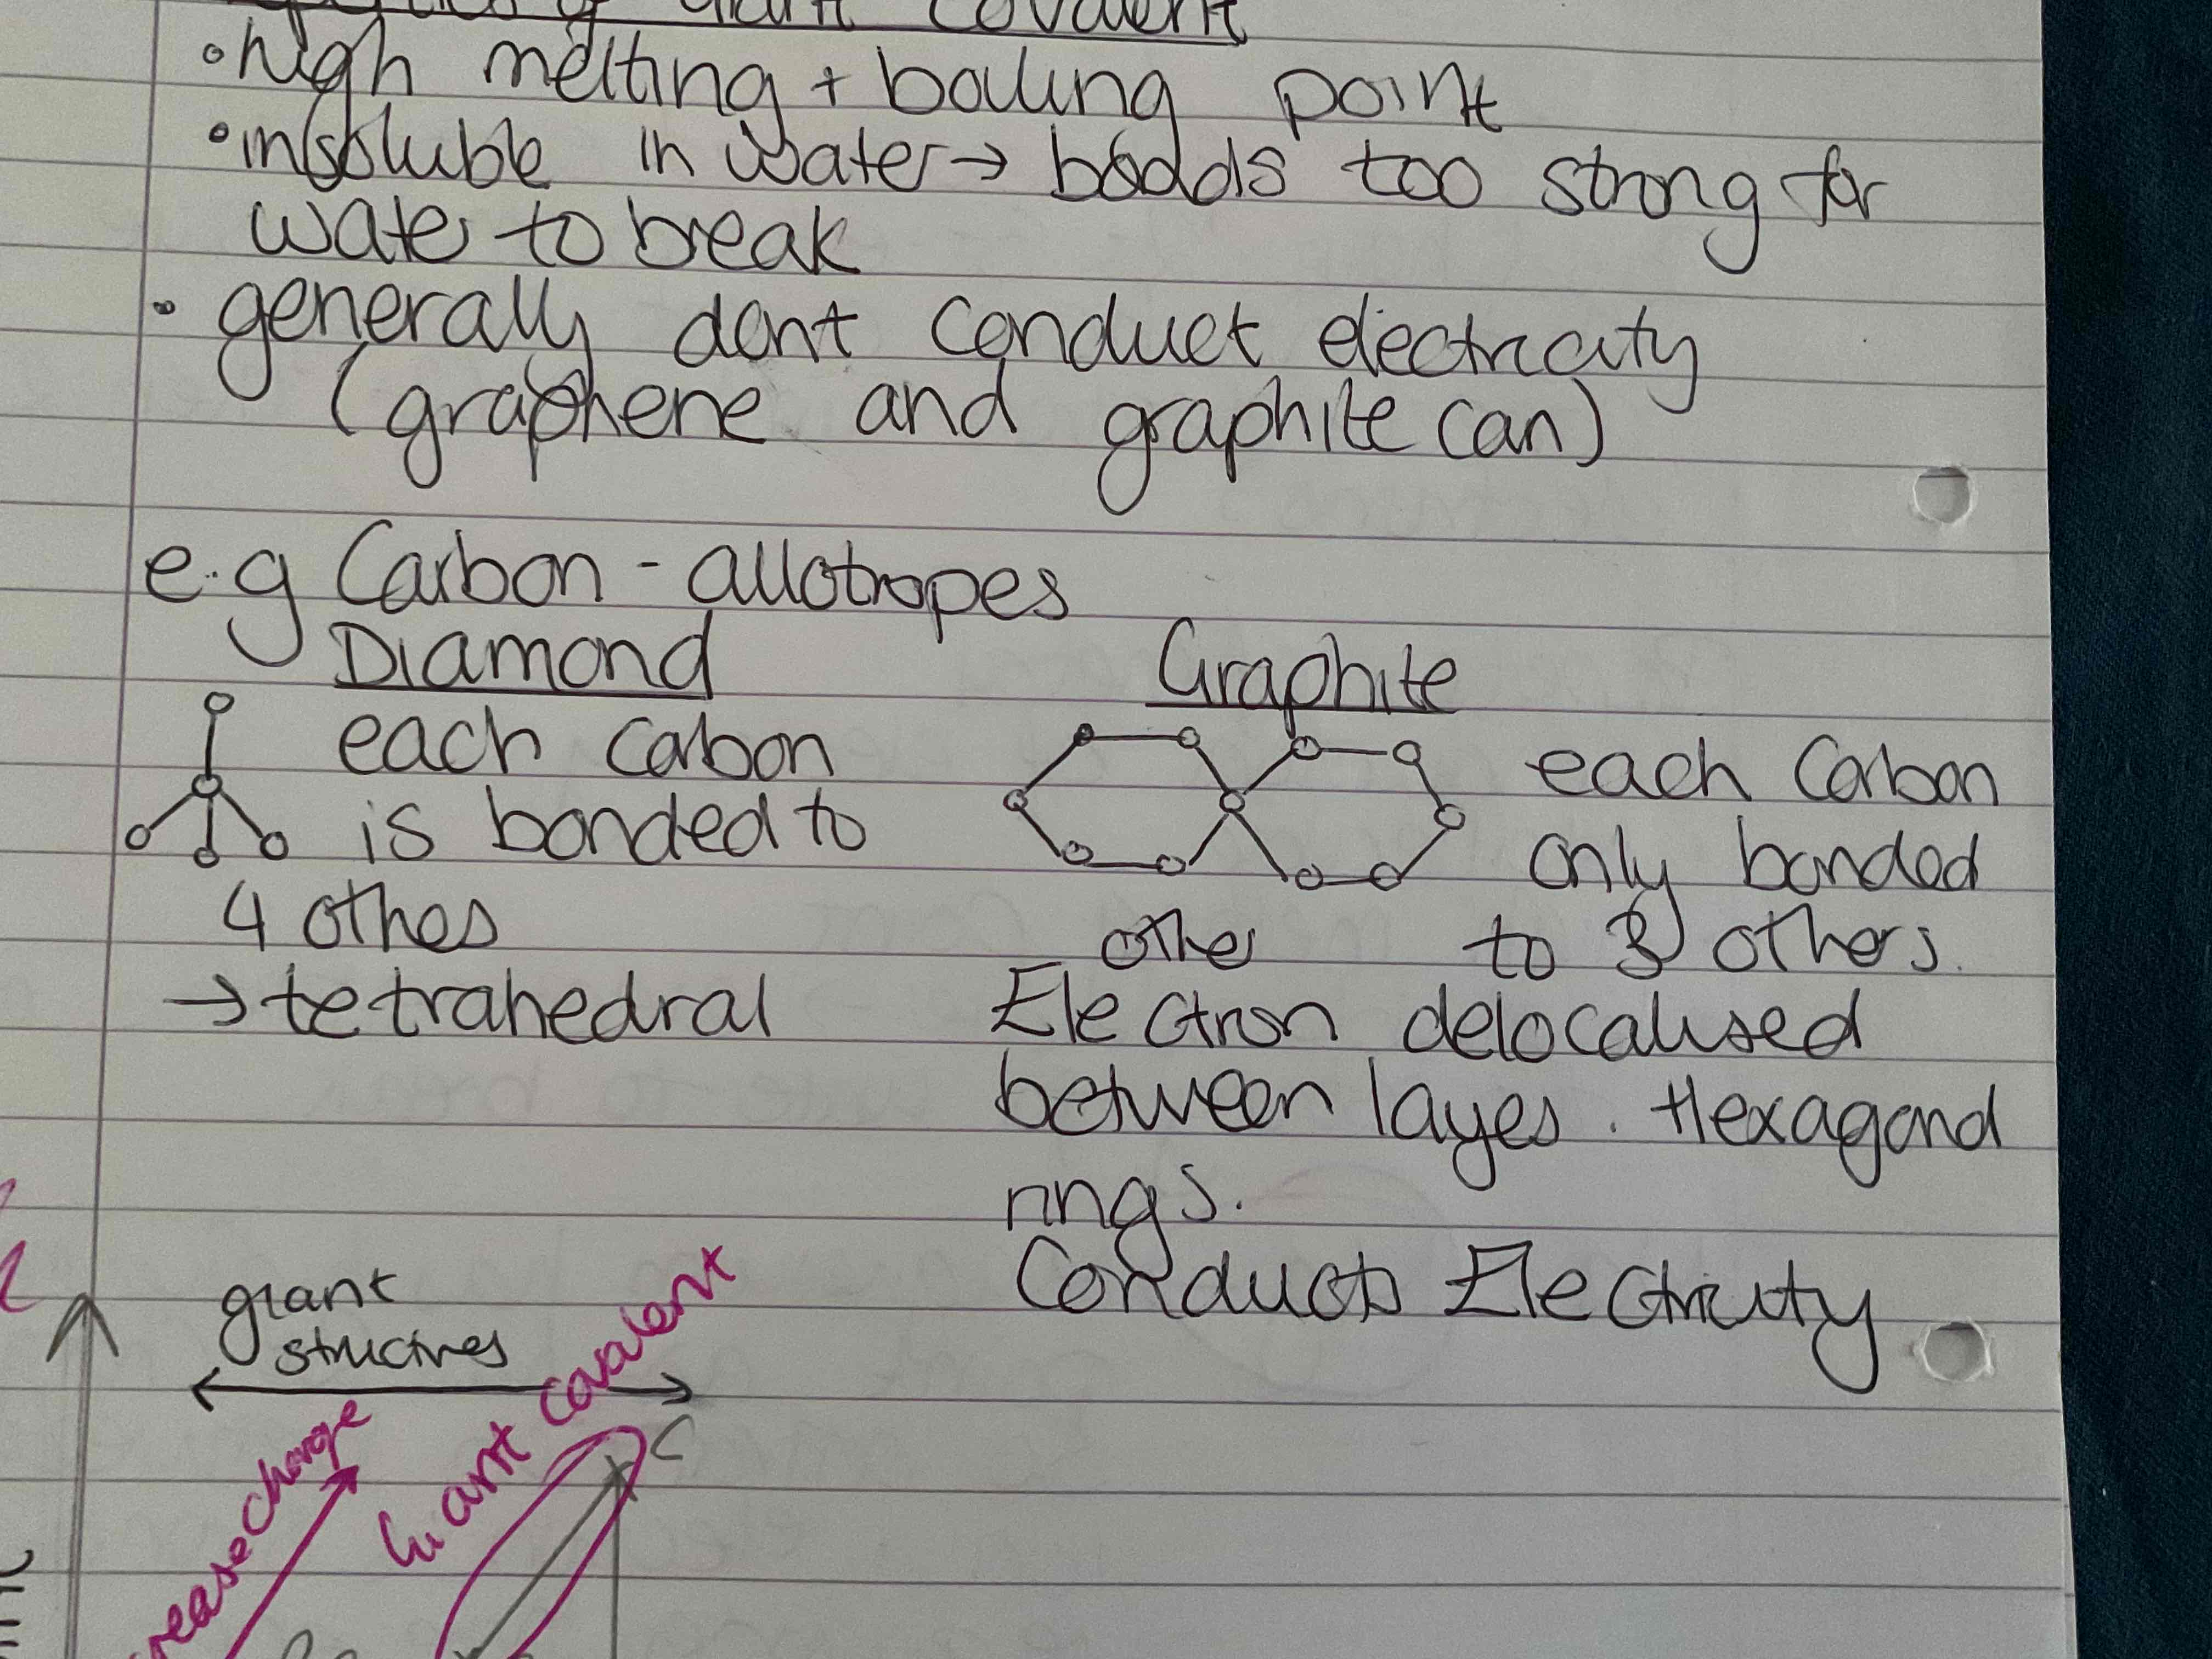 giant covalent
•high melting + boiling point
•insoluble in water → bonds too strong for
water to break
• generally dont conduct electricity
(graphene and graphite can)
e.g Carbon - allotropes
Diamond
each carbon
is bonded to
4 others
→ tetrahedral
Graphite
each Carbon
only bonded
other to 3 others.
Electron delocalised
between layers. Hexagonal
rings.
Conducts Electricity
giant
structures
charge
Giant covalent
C